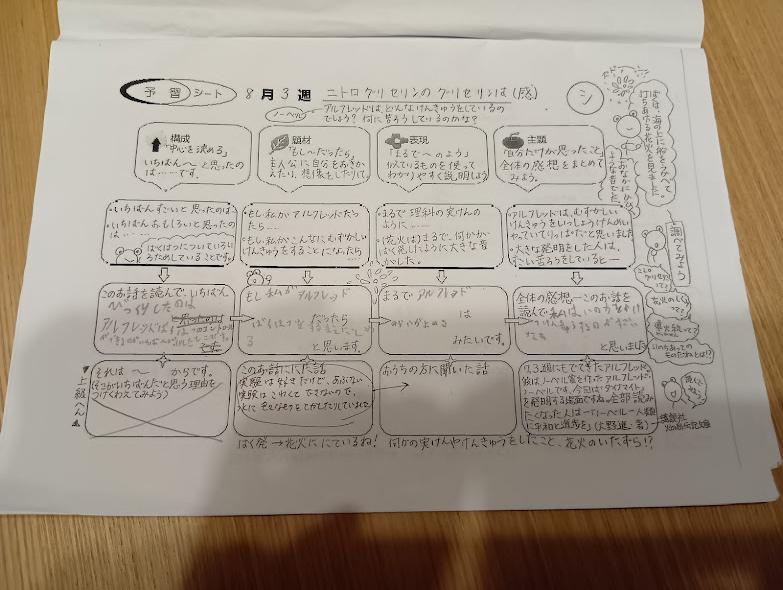 予習シート 8月3週 ニトログリセリンのグリセリンは(感)
ノーベル
アルフレッドは、どんなけんきゅうをしているの
でしょう？何に苦ろうしているのかな？
シ
構成
「中心を決める」
いちばん〜と思ったの
は……です。
題材
「もし〜だったら」
主人公に自分をおきか
えたり、想像をしたりして。
表現
「まるで〜のよう」
似ているものを使って
わかりやすく説明しよう
主題
「自分だけが思ったこと」
全体の感想をまとめて
みよう。
・いちばんすごいと思ったのは
・いちばんおもしろいと思ったの
は……
ばくはつについていろい
ろためしていることです。
・もし私がアルフレッドだっ
たら……
・もし私がこんなに、むずかしい
けんきゅうをすることになったら
・まるで理科の実けんの
ように……
・(花火は)まるで、何かがば
く発したように大きな音
がした。
・アルフレッドは、むずかしい
けんきゅうをいっしょうけんめい
やっていてりっぱだなと思いました
・大きな発明をした人は、
すごい苦ろうをしていると…
このお話を読んで、いちばん
びっくりしたのは
アルフレッドは
もし私が アルフレッド
だったら
と思います。
まるで アルフレッド
は
みたいです。
全体の感想…このお話を
読んで私は、
と思いました
上級へん
それは 〜 からです。
(そこがいちばんだと思う理由を
つけくわえてみよう)
このお話ににた話
実験は好きだけど、あぶない
実験はこわくてできないので、
おうちの方に聞いた話
7.3週にもでてきたアルフレッド。
彼はノーベル賞を作ったアルフレッド・
ノーベルです。今回はダイナマイト
を発明する場面ですね。全部読み
たくなった人は…「ノーベル…人類
に平和と進歩を」(大野進・著)
講談社
火の鳥伝記文庫
ばく発→花火ににているね！
何かの実けんやけんきゅうをしたこと、花火のいたずら！？
ぼくは、海の上に船をうかべて
打ちあげる花火を見ました。
おなかにひびく
ような音でした。
調べてみよう
ニトログリセリンって？
花火のしくみって？
導火線って？